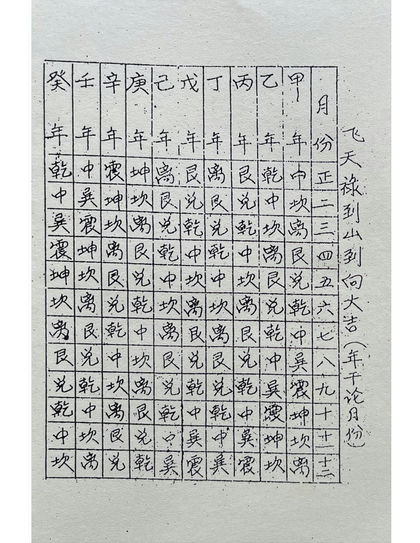 飞天祿到山到向大吉(年干论月份)
月份正二三四五六七八九十十一十二
甲年中坎离艮兑乾中巽震坤坎离
乙年乾中坎离艮兑乾中巽震坤坎
丙年艮兑乾中坎离艮兑乾中巽震
丁年离艮兑乾中坎离艮兑乾中巽
戊年艮兑乾中坎离艮兑乾中巽震
己年离艮兑乾中坎离艮兑乾中巽
庚年坤坎离艮兑乾中坎离艮兑乾
辛年震坤坎离艮兑乾中坎离艮兑
壬年中巽震坤坎离艮兑乾中坎离
癸年乾中巽震坤坎离艮兑乾中坎